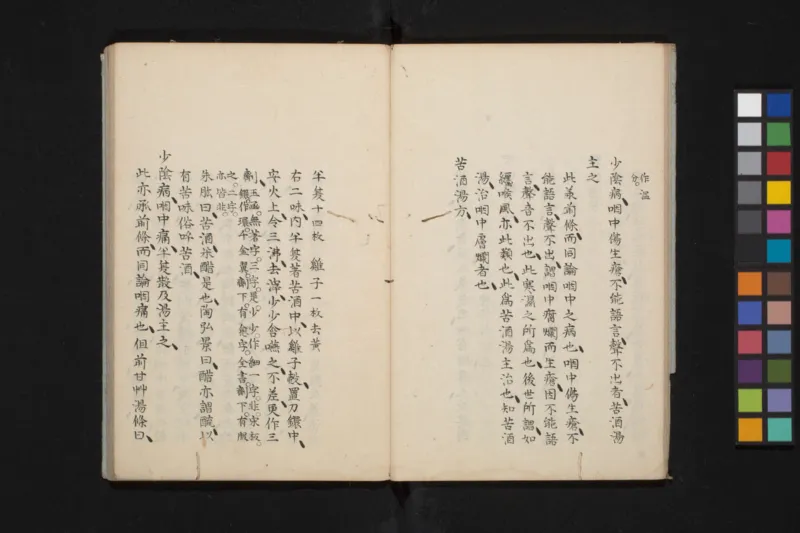 作温
少陰病咽中傷生瘡不能語言聲不出者苦酒湯
主之
此義前條而同論咽中之病也咽中傷生瘡不
能語言聲不出謂咽中腐爛而生瘡因不能語
言聲音不出也此寒濕之所爲也後世所謂如
纏喉風亦此類也此爲苦酒湯主治也知苦酒
湯治咽中腐爛者也
苦酒湯方
半夏十四枚 雞子一枚去黃
右二味内半夏著苦酒中以雞子殼置刀鐶中
安火上令三沸去滓少少含嚥之不差更作三
劑玉函無著字三字是少少作細一字非宋板
鐶作環千金翼劑下有愈字全書劑下有服
之二字
亦皆非
朱肱曰苦酒米醋是也陶弘景曰醋亦謂醯以
有苦味俗呼苦酒
少陰病咽中痛半夏散及湯主之
此亦承前條而同論咽痛也但前甘艸湯條曰